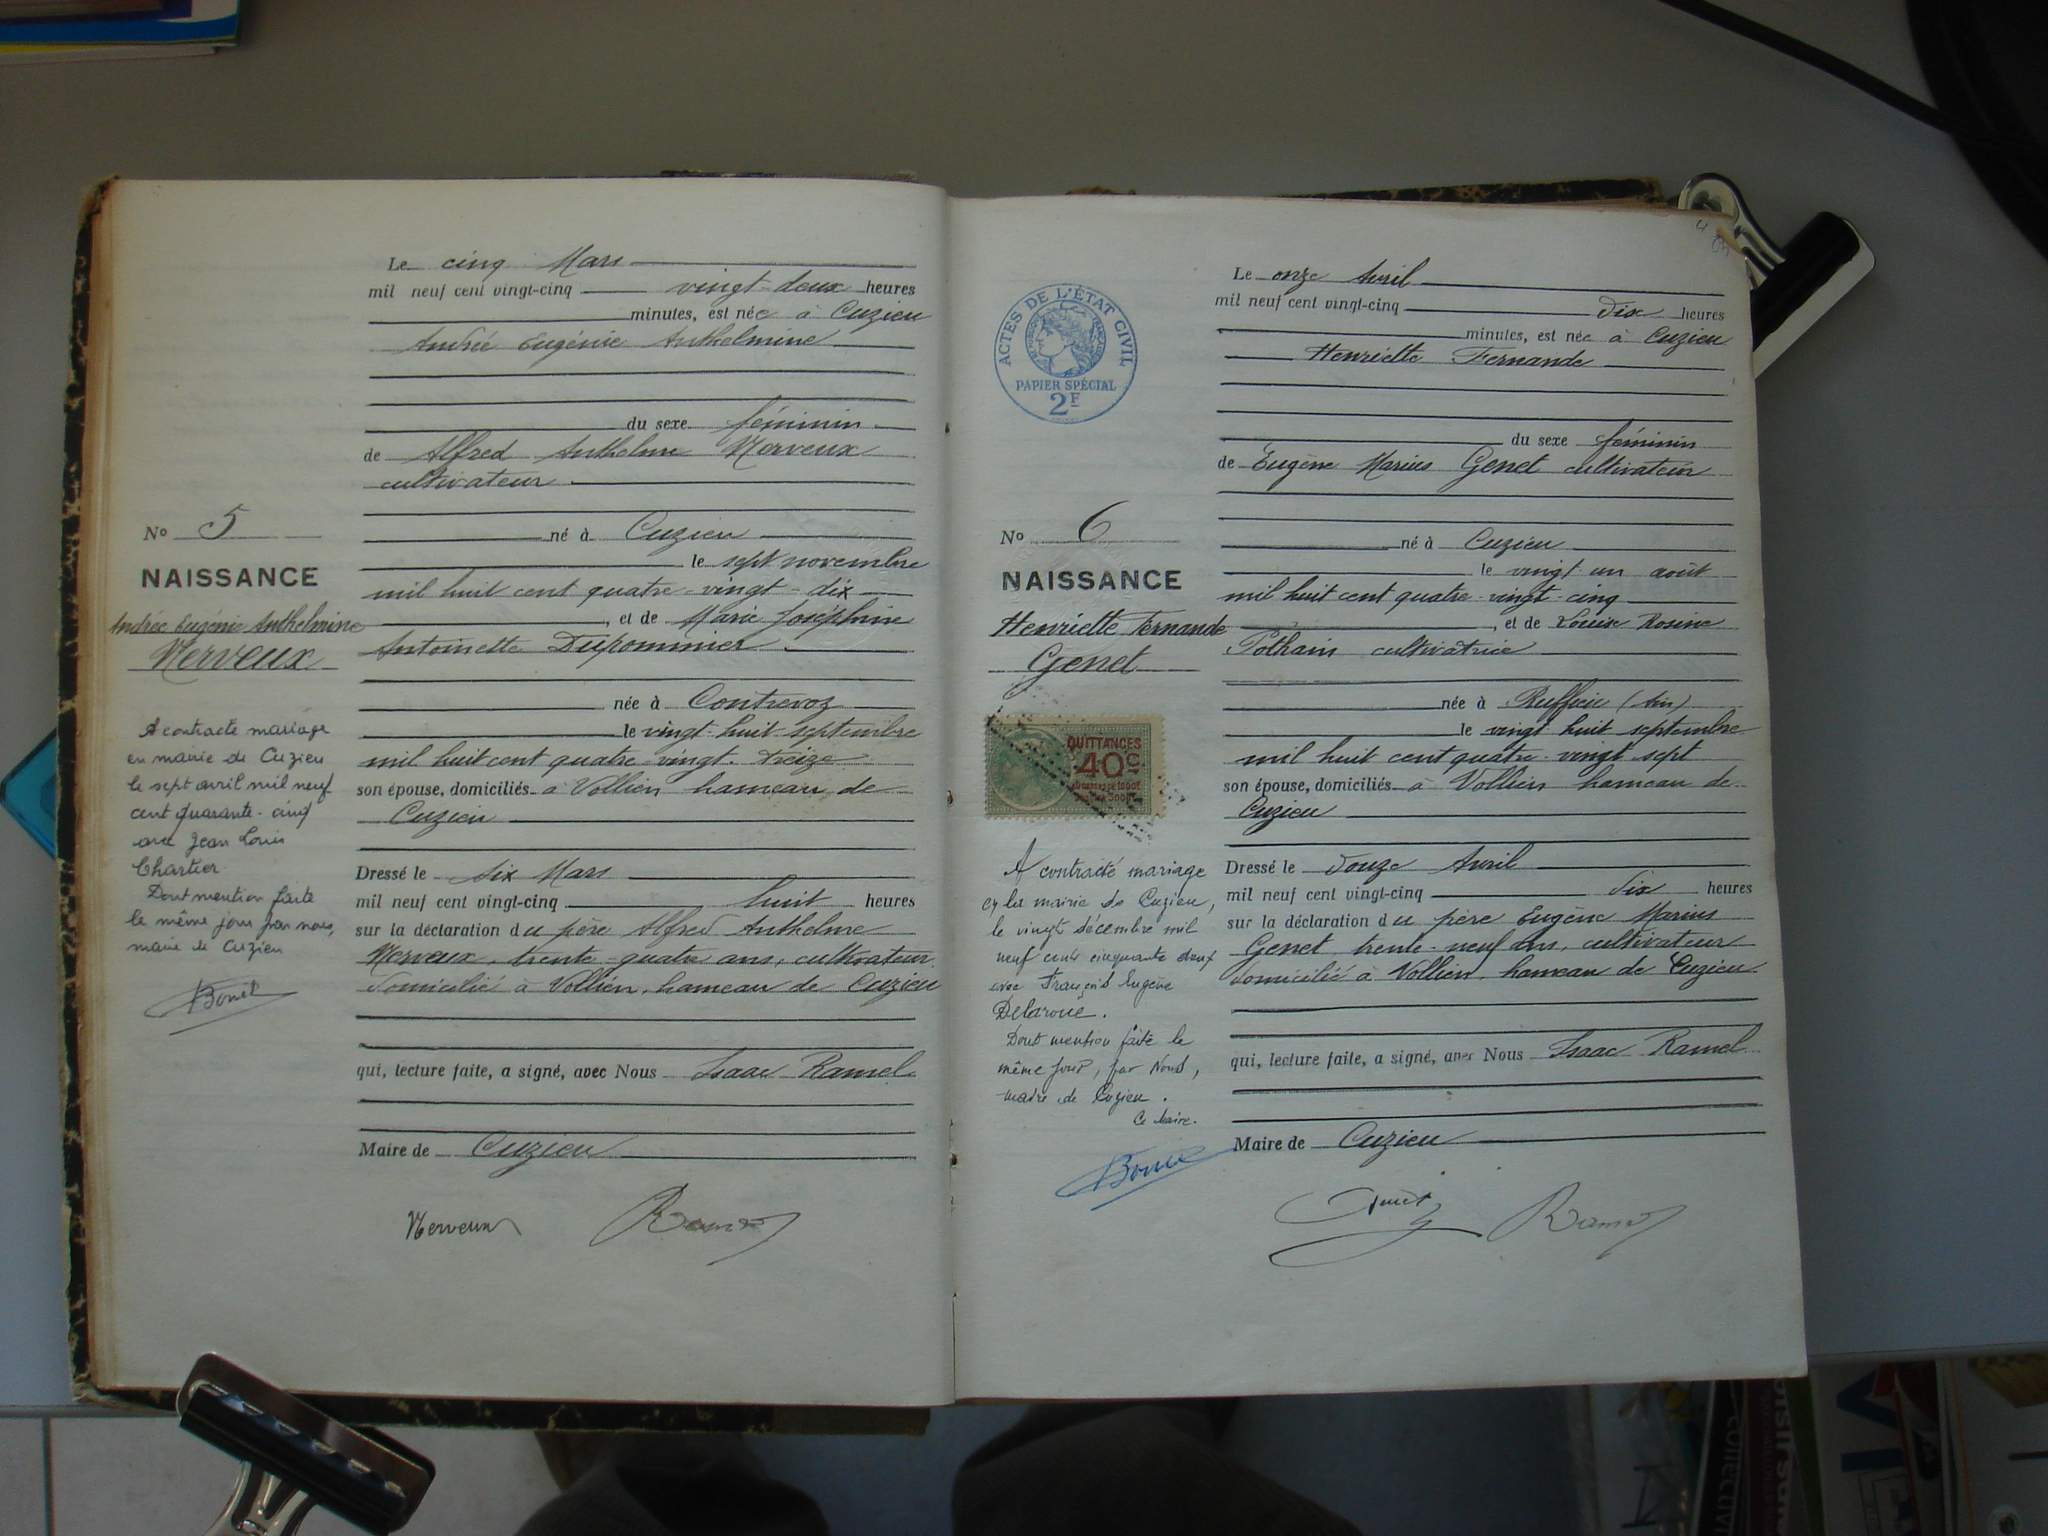 Le cinq Mars
mil neuf cent vingt-cinq vingt-deux heures
minutes, est née à Cuzieu
Andrée Eugénie Anthelmine
du sexe féminin
de Alfred Anthelme Nerveux
cultivateur
né à Cuzieu
le sept novembre
mil huit cent quatre-vingt-dix
, et de Marie Joséphine
Antoinette Dupommier
née à Contrevoz
le vingt-huit septembre
mil huit cent quatre-vingt-treize
son épouse, domiciliés à Vollien hameau de
Cuzieu
Dressé le six Mars
mil neuf cent vingt-cinq huit heures
sur la déclaration du père Alfred Anthelme
Nerveux, trente-quatre ans, cultivateur
domicilié à Vollien, hameau de Cuzieu
qui, lecture faite, a signé, avec Nous Isaac Ramel
Maire de Cuzieu
Nerveux Ramel
No 5
NAISSANCE
Andrée Eugénie Anthelmine
Nerveux
A contracté mariage
en mairie de Cuzieu
le sept avril mil neuf
cent quarante-cinq
avec Jean Louis
Chartier.
Dont mention faite
le même jour par nous,
maire de Cuzieu
ACTES DE L'ÉTAT CIVIL
PAPIER SPÉCIAL
2F
No 6
NAISSANCE
Henriette Fernande
Genet
QUITTANCES
40c
A contracté mariage
en la mairie de Cuzieu,
le vingt décembre mil
neuf cent cinquante deux
avec François Eugène
Delaroue.
Dont mention faite le
même jour, par Nous,
maire de Cuzieu.
Le Maire.
Le onze Avril
mil neuf cent vingt-cinq dix heures
minutes, est née à Cuzieu
Henriette Fernande
du sexe féminin
de Eugène Marius Genet cultivateur
né à Cuzieu
le vingt-un août
mil huit cent quatre-vingt-cinq
, et de Louise Rosine
Pothain cultivatrice
née à Ruffieu (Ain)
le vingt huit septembre
mil huit cent quatre-vingt sept
son épouse, domiciliés à Vollien hameau de
Cuzieu
Dressé le douze Avril
mil neuf cent vingt-cinq dix heures
sur la déclaration du père Eugène Marius
Genet, trente-neuf ans, cultivateur
domicilié à Vollien, hameau de Cuzieu
qui, lecture faite, a signé, avec Nous Isaac Ramel
Maire de Cuzieu
Genet Ramel